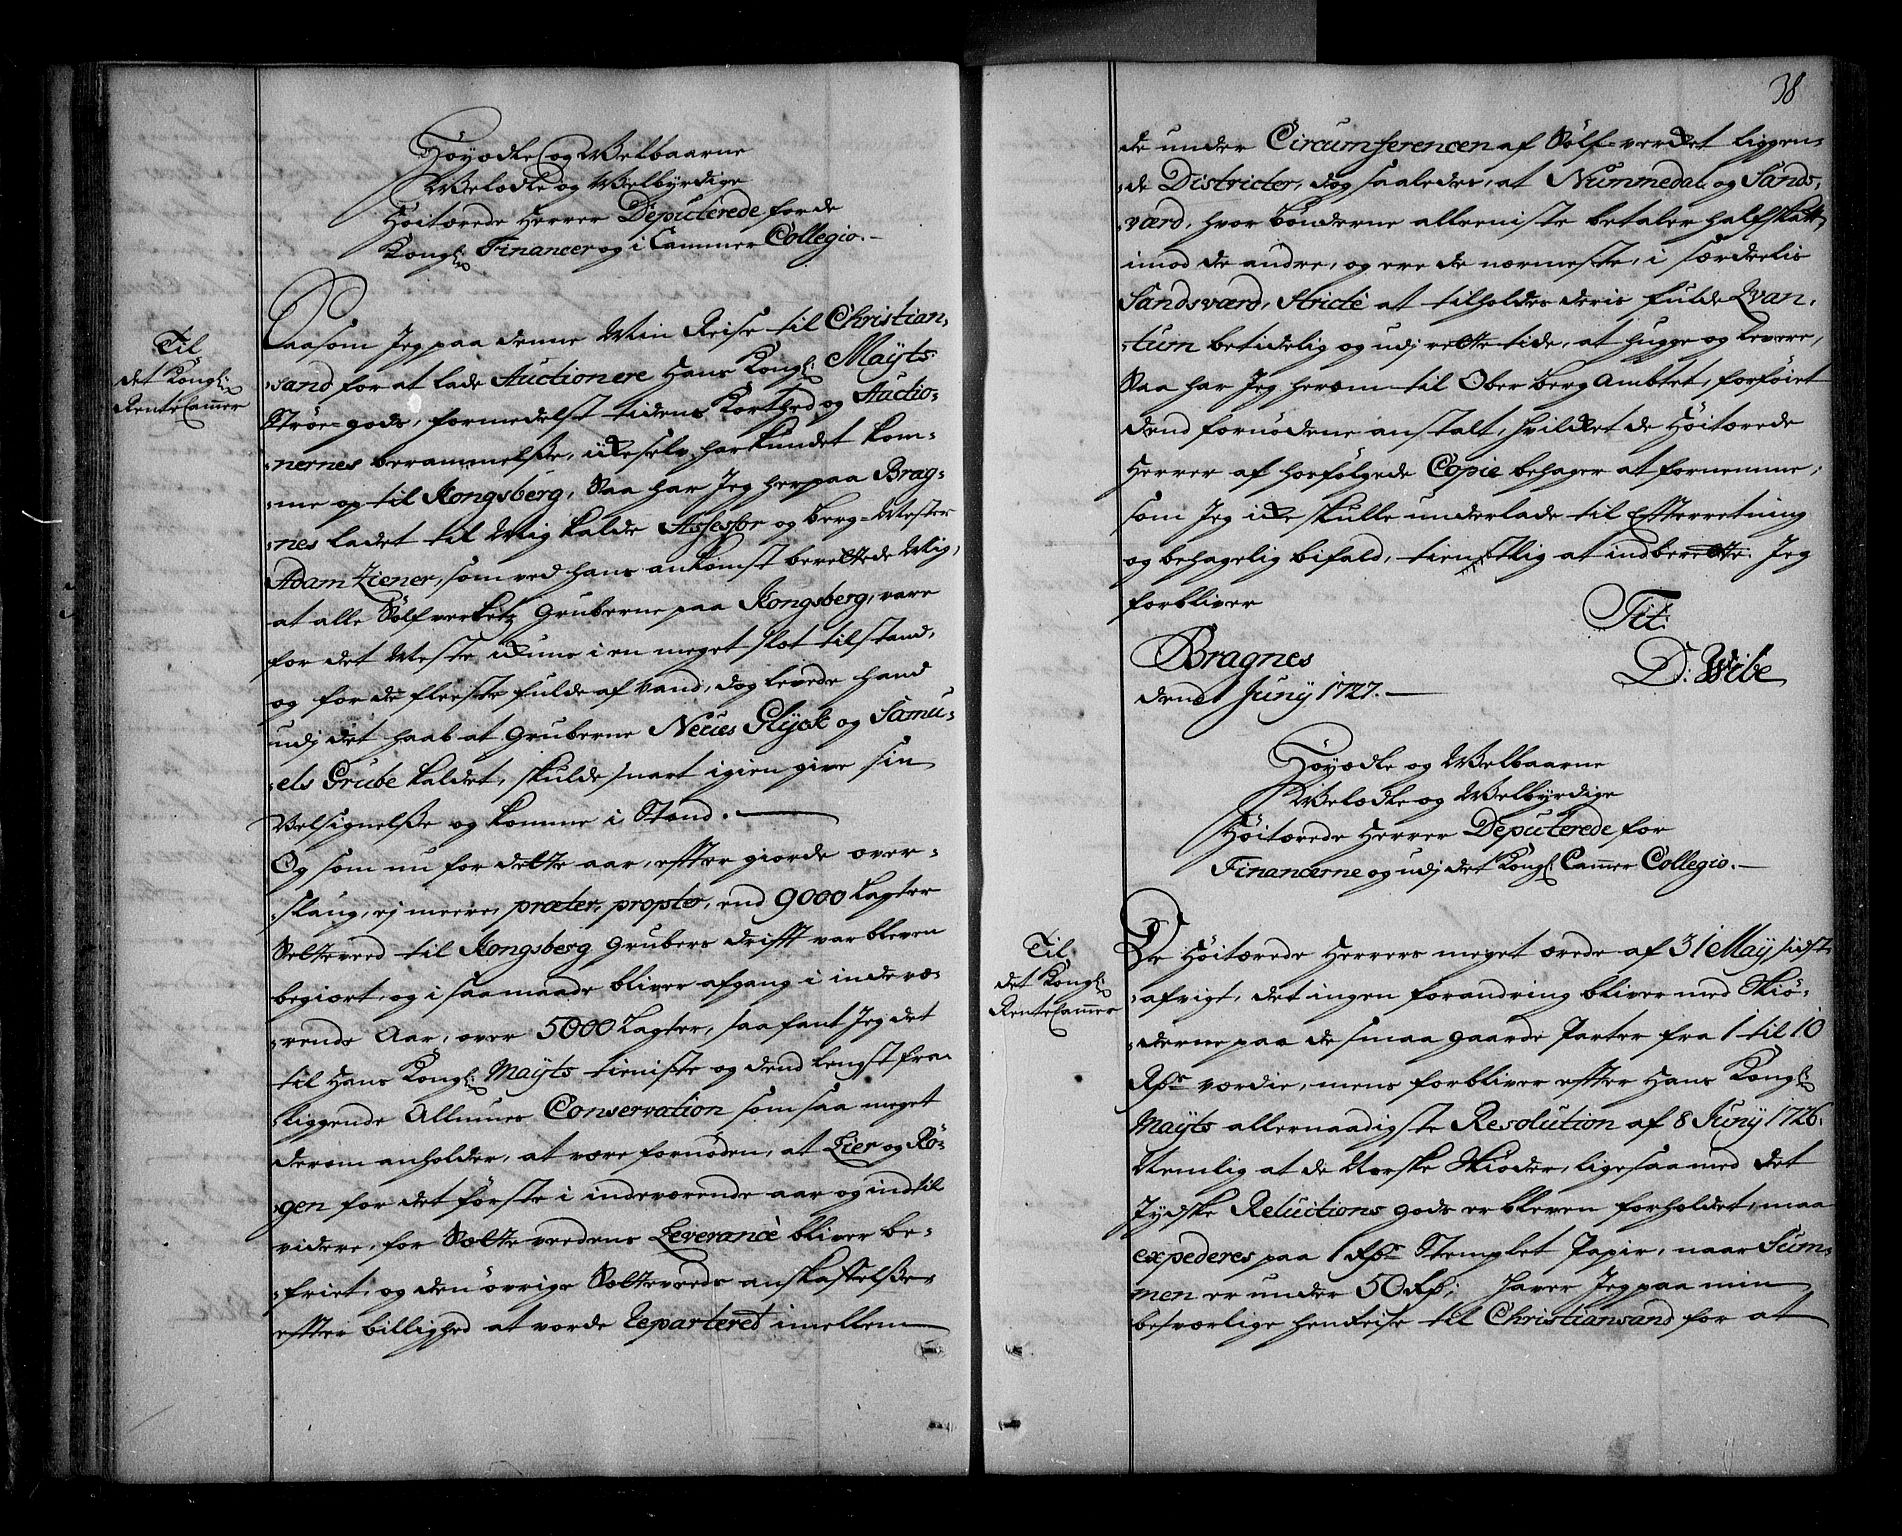 Höyædle og Welbaarne
Welædle og Welbyrdige
Höitærede Herrer Deputerede for de
Kongl: Financer og i Cammer Collegio.
Til
det Kongl:
RenteCam̄er
Saasom Jeg paa denne Min Reise til Christian-
sand for at lade Auctionere Hans Kongl: Mayts
Ströe-gods, formedelst tidens Korthed og Auctio-
nernes berammelsse, icke selv har kundet kom-
me op til Kongsberg, Saa har Jeg her paa Brag-
nes ladet til Mig kalde Assessor og Berg-Mester
Adam Ziener, som ved hans ankomst berettede Mig,
at alle Sölfverkets Gruberne paa Kongsberg, vare
for det Meste ickuns i en meget slet tilstand,
og for de fleeste fulde af vand, dog levede hand
udj det haab at Gruberne Neües Glyck og Samu-
els Grube kaldet, skulde snart igien give sin
Velsignelsse og komme i Stand.
Og som nu for dette aar, efter giorde over-
slaug, ej meere, præter propter, end 9000 Lagter
Setteveed til Kongsberg Grubers drifft var bleven
begiert, og i saa maade bliver afgang i indevæ-
rende Aar, over 5000 Lagter, saa fant Jeg det
til Hans Kongl: Mayts tieniste og dend lengst fra
liggende Allmues Conservation som saa meget
derom anholder, at være fornöden, at Lier og Rö-
gen for det förste i indeværende aar og indtil
videre, for Setteveedens Leverance bliver be-
friet, og den övrige Setteveeds anskaffelsse,
efter billighed at vorde Reparteret imellem
38
de under Circumferencen af Sölf-verket liggen-
de Districter, dog saaledes, at Nummedal og Sands-
værd, hvor bönderne alleeniste betaler half skatt,
imod de andre, og ere de nærmeste, i særdeelis
Sandsværd, Stricté at tilholdes deris fulde Qvan-
tum betidelig og udj rette tide, at hugge og levere,
Saa har Jeg herom til Ober Berg Ambtet, forföiet
dend fornödene anstalt, hvilket de Höitærede
Herrer af hosfölgede Copie behager at fornemme,
som Jeg icke skulle underlade til Efterretning
og behagelig bifald, tienstlig at indberette. Jeg
forbliver
Tit:
Bragnes
D: Wibe
den 1 Junij 1727.
Höyædle og Welbaarne
Welædle og Welbyrdige
Höitærede Herrer Deputerede for
Financerne og udj det Kongl: Cam̄er Collegio.
Til
det Kongl:
RenteCam̄er
De Höitærede Herrers meget ærede af 31 May sidst
afvigt, det ingen forandring bliver med Skiö-
derne paa de smaa gaarde Parter fra 1 til 10
Rdr værdie, mens forbliver efter Hans Kongl:
Mayts allernaadigste Resolution af 8 Junij 1726.
Nemlig at de Norske Skiöder, ligesaa med det
Jydske Reluctions gods er bleven forholdet, maa
expederes paa 1 Rdr Stemplet Papir, naar Sum-
men er under 50 Rd; Haver Jeg paa min
besværlige henreise til Christiansand for at